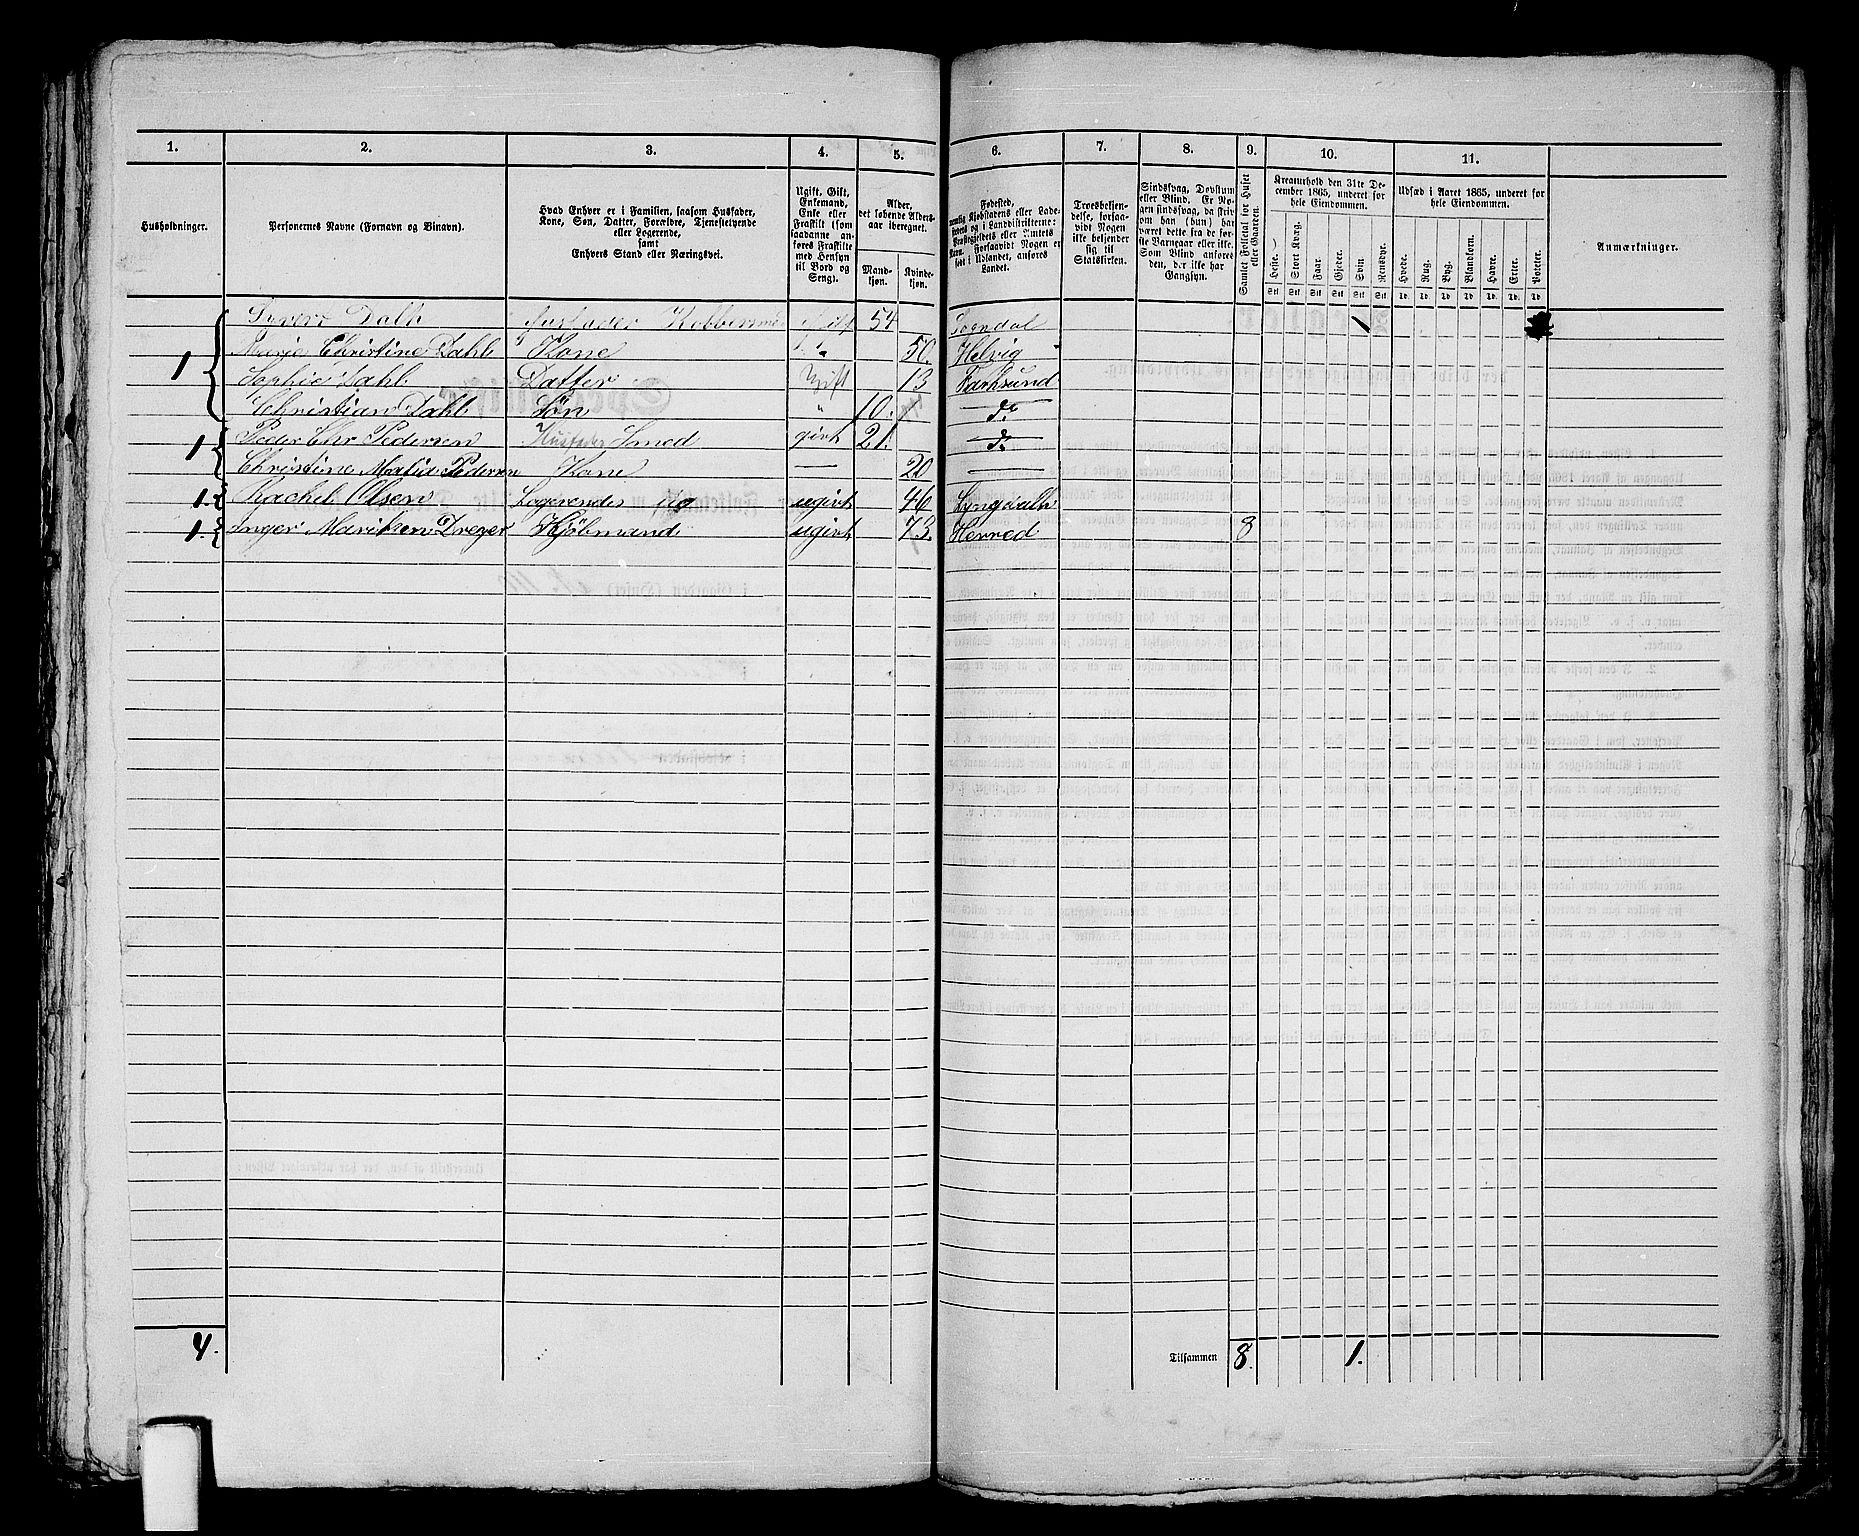 1. 2. 3. 4. 5. 6. 7. 8. 9. 10. 11.
Husholdninger.
Personernes Navne (Fornavn og Binavn).
Hvad Enhver er i Familien, saasom Husfader,
Kone, Søn, Datter, Forældre, Tjenestetydende
eller Logerende,
samt
Enhvers Stand eller Næringsvei.
Ugift, Gift,
Enkemand,
Enke eller
Fraskilt (som
saadanne an-
føres Fraskilte
med Hensyn
til Bord og
Seng).
Alder,
det løbende Alders-
aar iberegnet.
Mand-
kjøn.
Kvinde-
kjøn.
Fødested,
nemlig Kjøbstadens eller Lade-
stedets og i Landdistrikterne:
Præstegjeldets eller Amtets
Navn. Forsaavidt Nogen er
født i Udlandet, anføres
Landet.
Troesbekjen-
delse, forsaa-
vidt Nogen
ikke bekjender
sig til
Statskirken.
Sindssvag, Døvstum
eller Blind. Er No-
gen sindssvag, da skriv
om han (hun) har
været dette fra de før-
ste Barneaar eller ikke.
Som Blind anføres
den, der ikke har
Gangsyn.
Samlet Folketal for Huset
eller Gaarden.
Kreaturhold den 31te De-
cember 1865, underet for
hele Eiendommen.
Heste. Stort Kvæg. Faar. Gjeder. Svin Rensdyr.
Stk Stk Stk Stk Stk Stk
Udsæd i Aaret 1865, underet for
hele Eiendommen.
Hvede. Rug. Byg. Blandkorn. Havre. Erter. Poteter.
Td. Td. Td. Td. Td. Td. Td.
Anmærkninger.
Syvert Dalh Husfader Kobbersmed Gift 54 Sogndal 1
1 Marie Christine Dahl Kone " 50. Helvig
Sophie Dahl Datter Ugift 13 Farhsund
Christian Dahl Søn " 10. do
1 Peder Chr Pedersen Husfader Smed givt 21. do
Christine Maria Pedersen Kone — 20 —
1. Rachel Olsen Logerendes ugivt 46 Lyngdalh
1. Inger Mariken Dreyer Kjøbmand ugivt 73. Herred 8
4. Tilsammen 8. 1.